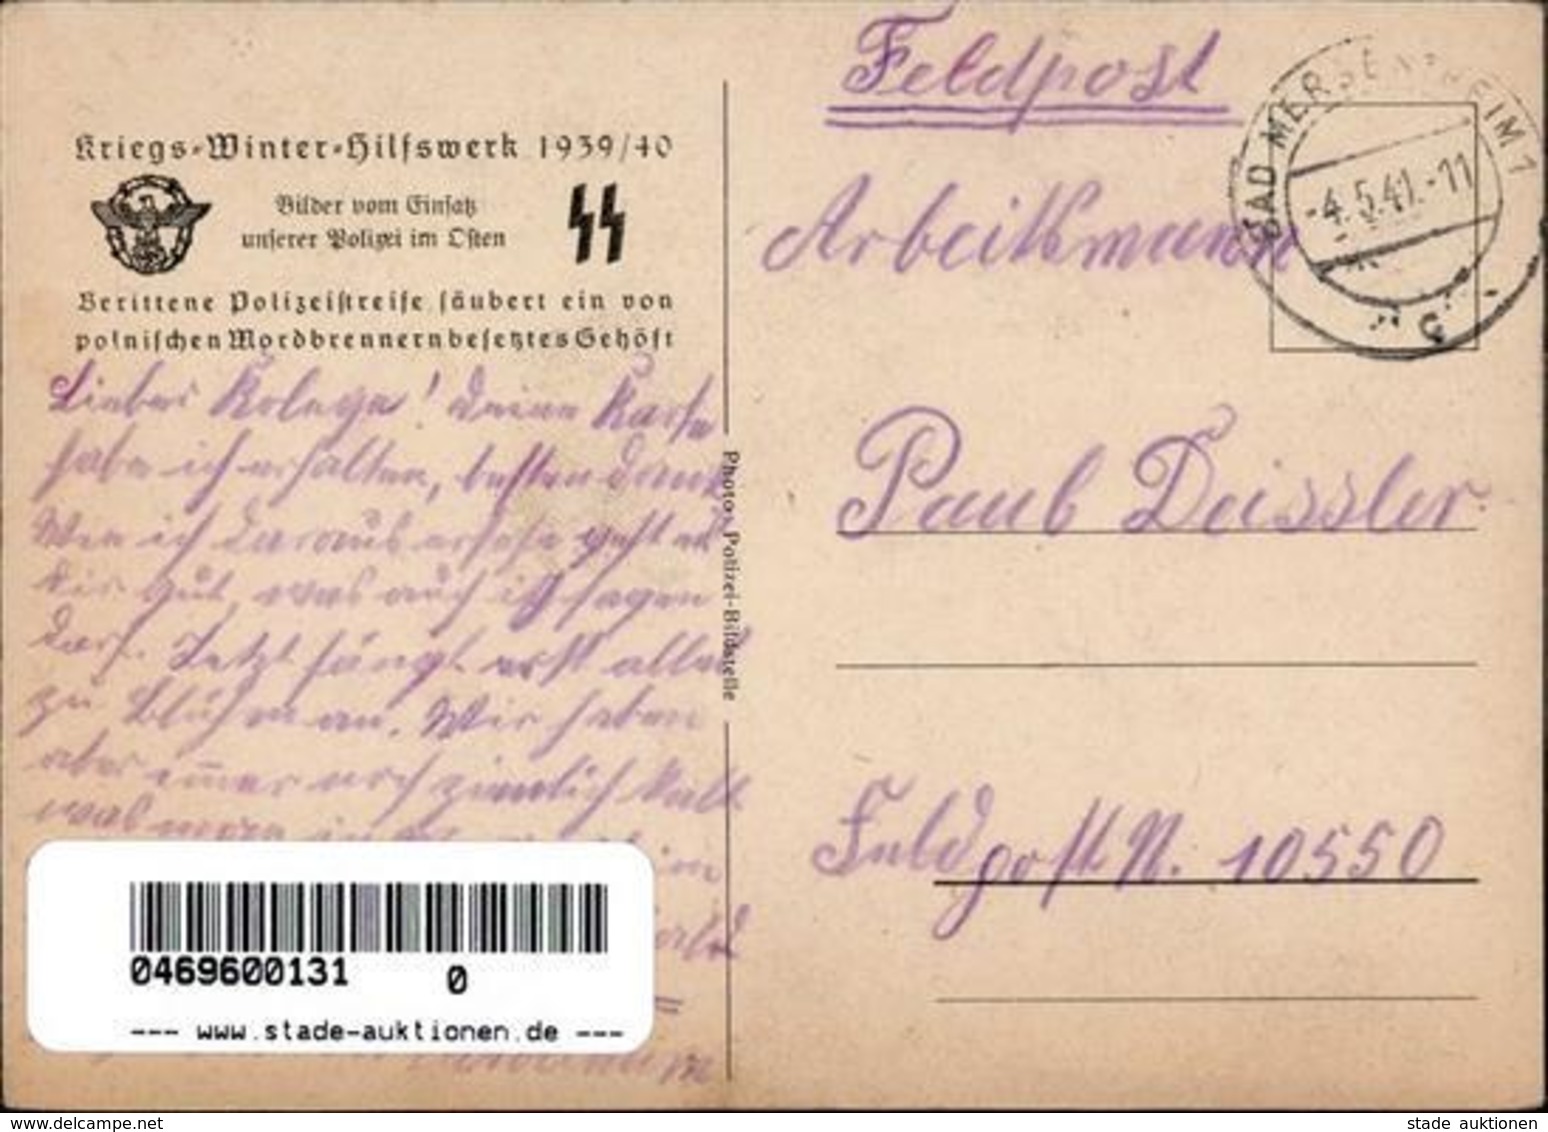 Kriegs-Winter-Hilfswerk 1939/40
Bilder vom Einsatz
unserer Polizei im Osten
Berittene Polizeistreife säubert ein von
polnischen Mordbrennern besetztes Gehöft
Lieber Kolege! Deine Karte
habe ich erhalten, besten Dank
Wie ich daraus ersehe geht es
dir gut, was auch ich sagen
darf. Jetzt fängt erst alles
zu blühen an. Wir haben
aber immer noch ziemlich kalt
Photo: Polizei-Bildstelle
Feldpost
BAD MERGENTHEIM 1
-4.5.41.-11
c
Arbeitsmann
Paul Deissler
Feldpost N. 10550
0469600131 0
--- www.stade-auktionen.de ---
www.delcampe.net
stade auktionen